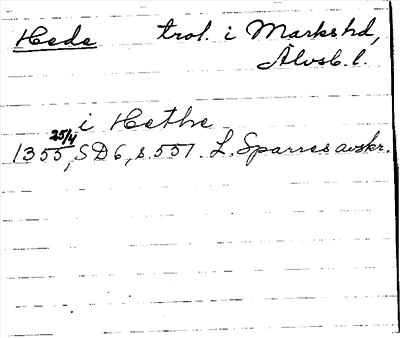 Hede trol. i Marks hd,
Älvsb. l.
i Hethe
1355 25/4, SD 6, s. 557. L. Sparres avskr.